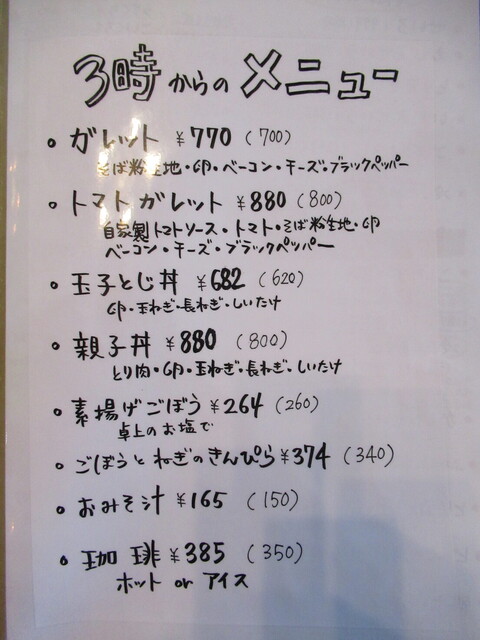 3時からのメニュー
• ガレット ¥770 (700)
そば粉生地・卵・ベーコン・チーズ・ブラックペッパー
• トマトガレット ¥880 (800)
自家製トマトソース・トマト・そば粉生地・卵
ベーコン・チーズ・ブラックペッパー
• 玉子とじ丼 ¥682 (620)
卵・玉ねぎ・長ねぎ・しいたけ
• 親子丼 ¥880 (800)
とり肉・卵・玉ねぎ・長ねぎ・しいたけ
• 素揚げごぼう ¥264 (260)
卓上のお塩で
• ごぼうとねぎのきんぴら ¥374 (340)
• おみそ汁 ¥165 (150)
• 珈琲 ¥385 (350)
ホット or アイス